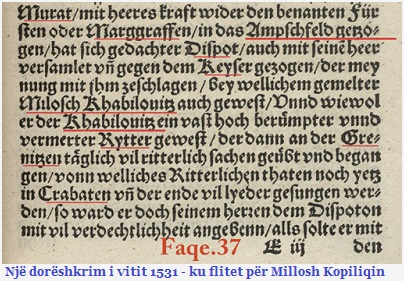 Murat/mit heeres krafft wider den benanten Für
sten oder Marggraffen/in das Ampschfeld getzo-
gen/hat sich gedachter Dispot/auch mit seinẽ heer
versamlet vñ gegem dem Keyser gezogen/der mey
nung mit jhm zeschlagen/bey wellichem gemelter
Milosch Khabilouitz auch gewest/Vnnd wiewol
er der Khabilouitz ein vast hoch berümpter vnnd
vermerter Rytter gewest/der dann an der Gre-
nitzen täglich vil ritterlich sachen geübt vnd began
gen/vonn welliches Ritterlichẽ thaten noch yetz
in Crabaten vñ der ende vil lyeder gesungen wer-
den/so ward er doch seinem herren dem Dispoton
mit vil verdechtlichheit angebenn/alls solte er mit
Faqe.37 E iij den
Një dorëshkrim i vitit 1531 - ku flitet për Millosh Kopiliqin